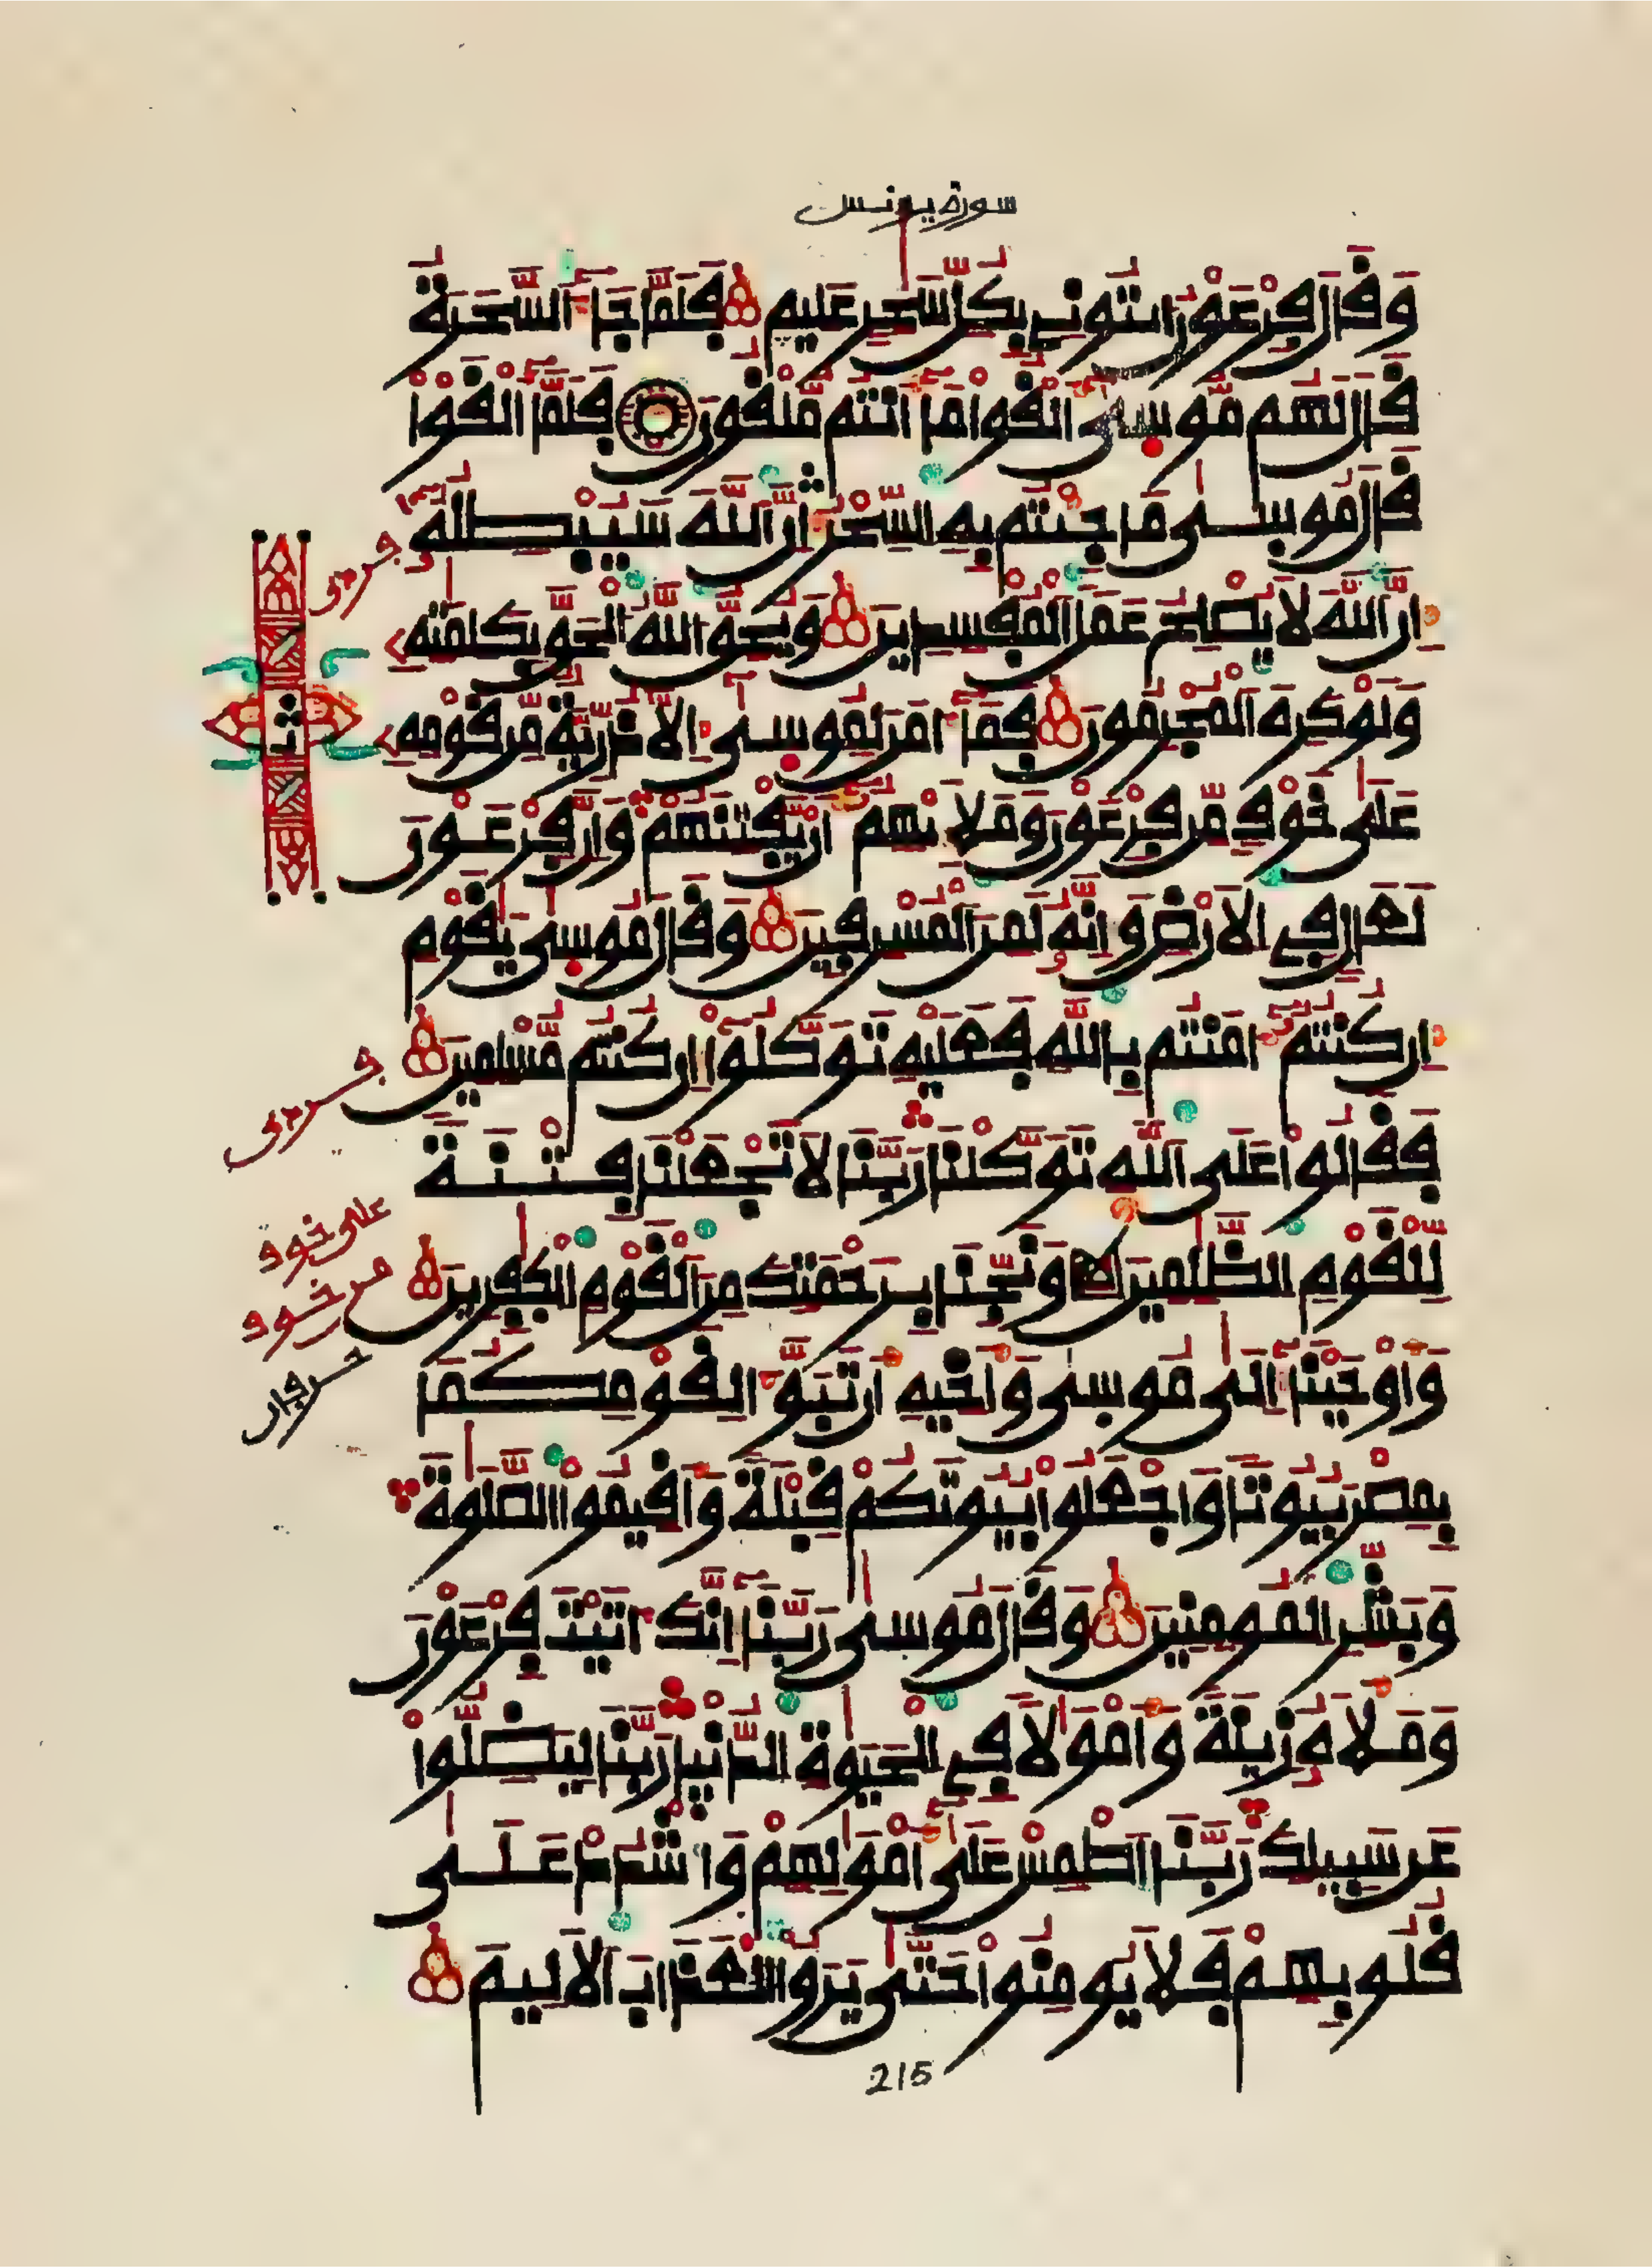 سورة يونس
وَقَالَ فِرْعَوْنُ ايتُونِے بِكُلِّ سَٰحِرٍ عَلِيمٍ فَلَمَّا جَآءَ اَ۬لسَّحَرَةُ
قَالَ لَهُم مُّوسَىٰٓ أَلْقُوا مَآ أَنتُم مُّلْقُونَ فَلَمَّآ أَلْقَوْا
قَالَ مُوسَىٰ مَا جِئْتُم بِهِ السِّحْرُ إِنَّ اَ۬للَّهَ سَيُبْطِلُهُۥٓ
إِنَّ اَ۬للَّهَ لَا يُصْلِحُ عَمَلَ اَ۬لْمُفْسِدِينَ وَيُحِقُّ اُ۬للَّهُ اُ۬لْحَقَّ بِكَلِمَٰتِهِۦ
وَلَوْ كَرِهَ اَ۬لْمُجْرِمُونَ فَمَآ ءَامَنَ لِمُوسَىٰٓ إِلَّا ذُرِّيَّةٌ مِّن قَوْمِهِۦ
عَلَىٰ خَوْفٍ مِّن فِرْعَوْنَ وَمَلَإِيْهِمُۥٓ أَنْ يَّفْتِنَهُمْ وَإِنَّ فِرْعَوْنَ
لَعَالٍ فِے اِ۬لَارْضِ وَإِنَّهُۥ لَمِنَ اَ۬لْمُسْرِفِينَ وَقَالَ مُوسَىٰ يَٰقَوْمِ
إِن كُنتُمُۥٓ ءَامَنتُم بِاللَّهِ فَعَلَيْهِ تَوَكَّلُوٓا إِن كُنتُم مُّسْلِمِينَ
فَقَالُوا عَلَى اَ۬للَّهِ تَوَكَّلْنَا رَبَّنَا لَا تَجْعَلْنَا فِتْنَةً
لِّلْقَوْمِ اِ۬لظَّٰلِمِينَ وَنَجِّنَا بِرَحْمَتِكَ مِنَ اَ۬لْقَوْمِ اِ۬لْكٰفِرِينَ
وَأَوْحَيْنَآ إِلَىٰ مُوسَىٰ وَأَخِيهِ أَن تَبَوَّءَا لِقَوْمِكُمَا
بِمِصْرَ بُيُوتاً وَاجْعَلُوا بُيُوتَكُمْ قِبْلَةً وَأَقِيمُوا اُ۬لصَّلَوٰةَ
وَبَشِّرِ اِ۬لْمُومِنِينَ وَقَالَ مُوسَىٰ رَبَّنَآ إِنَّكَ ءَاتَيْتَ فِرْعَوْنَ
وَمَلَأَهُۥ زِينَةً وَأَمْوَٰلاً فِے اِ۬لْحَيَوٰةِ اِ۬لدُّنْيَا رَبَّنَا لِيَضِلُّوا
عَن سَبِيلِكَ رَبَّنَا اَ۪طْمِسْ عَلَىٰٓ أَمْوَٰلِهِمْ وَاشْدُدْ عَلَىٰ
قُلُوبِهِمْ فَلَا يُومِنُوا حَتَّىٰ يَرَوُا اُ۬لْعَذَابَ اَ۬لَالِيمَ
215
ثمن
على خوف
من خوف